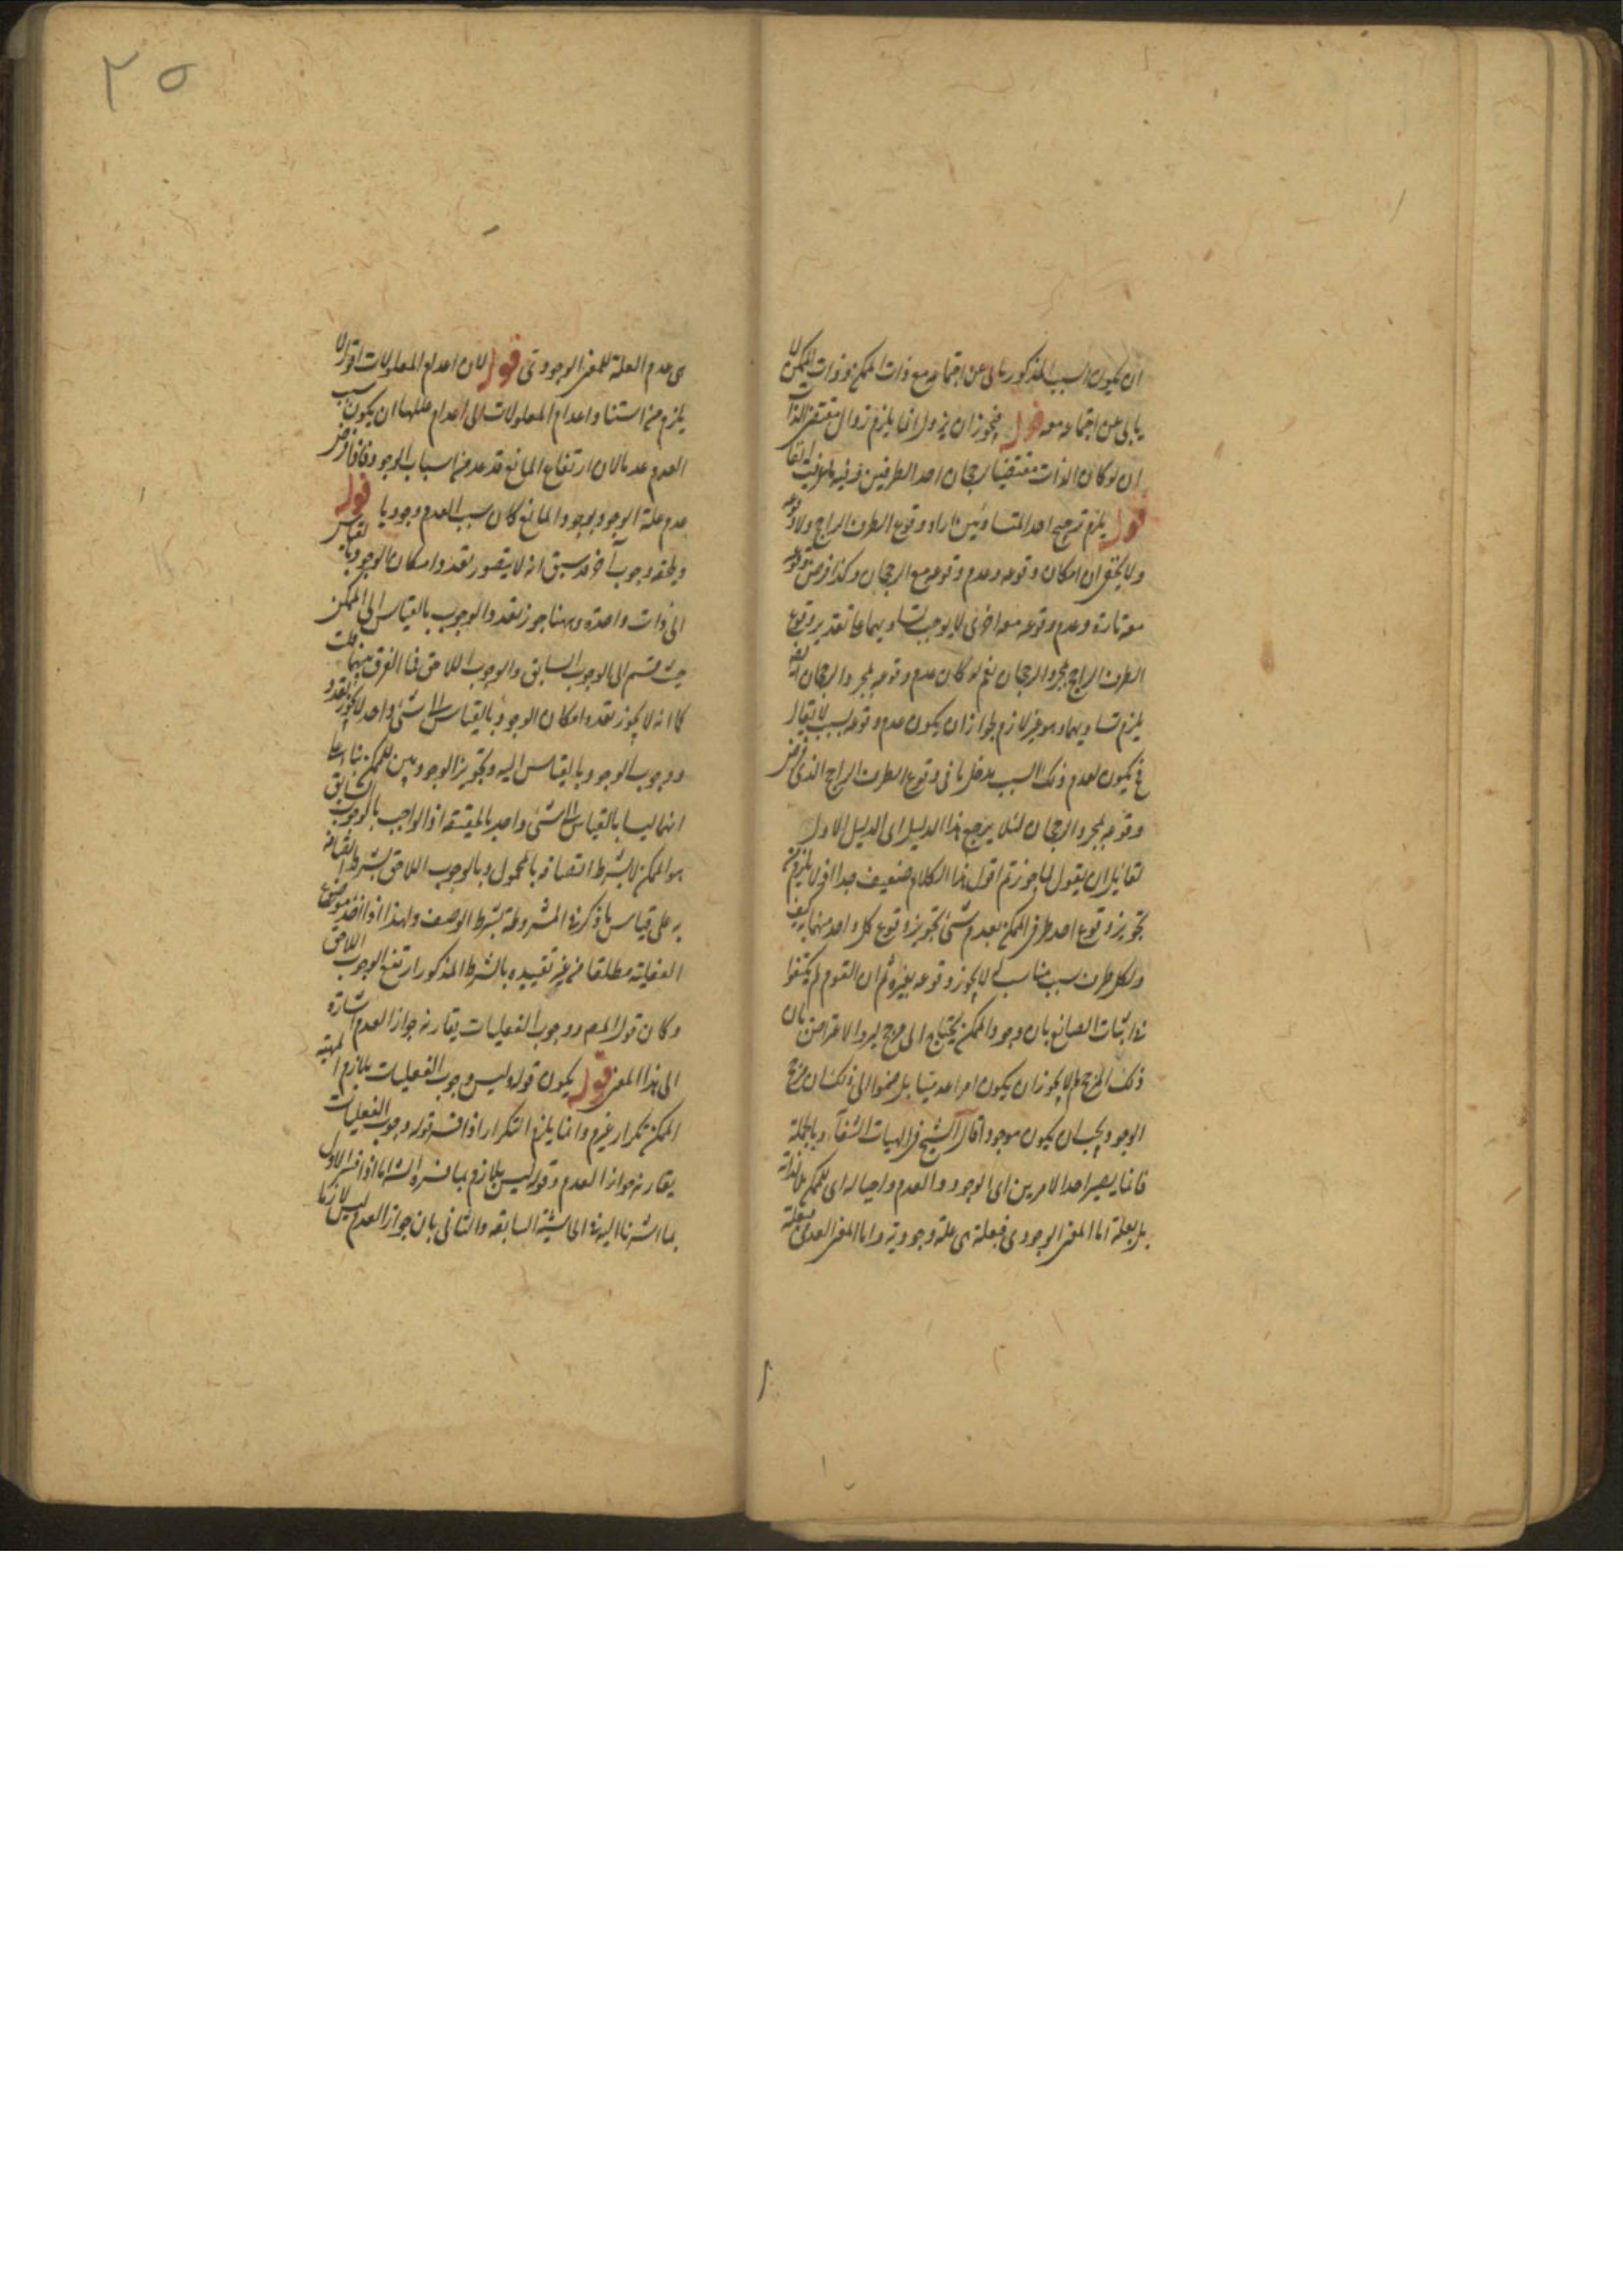 ان يكون السبب المذكور يابى عن اجتماعه مع ذات الممكن وذات الممكن لا
يابى عن اجتماعه معه قوله فيجوز ان يزول انما يلزم زوال مقتضى الذات
ان لو كان الذات مقتضيا رجحان احد الطرفين وفيه
قوله يلزم ترجيح احد المتساويين اراد وقوع الطرف الراجح ولا وقوعه
ولا يخفى ان امكان وقوعه وعدم وقوعه مع الرجحان وكذا فرض وقوعه
معه تارة وعدم وقوعه معه اخرى لا يوجب تساويهما على تقدير وقوع
الطرف الراجح بمجرد الرجحان نعم لو كان عدم وقوعه بمجرد الرجحان ايضا
يلزم تساويهما وهو غير لازم لجواز ان يكون عدم وقوعه بسبب لا يقال
فح يكون لعدم ذلك السبب مدخل ما فى وقوع الطرف الراجح الذى فرض
وقوعه بمجرد الرجحان لئلا يرجع هذا الدليل الى الدليل الاول
لقائل ان يقول لما جوزتم اقول هذا الكلام ضعيف جدا اذ لا يلزم من
تجويز وقوع احد طرفى الممكن بعدم شئ تجويز وقوع كل واحد منهما به كيف
ولكل طرف سبب مناسب له لا يجوز وقوعه بغيره ثم ان القوم لم يكتفوا
فى اثبات الصانع بان وجود الممكن يحتاج الى مرجح ليرد الاعتراض بان
ذلك المرجح لم لا يجوز ان يكون امرا عدميا بل ضموا الى ذلك ان مرجح
الوجود يجب ان يكون موجودا قال الشيخ فى الهيات الشفآء وبالجملة
فانما يصير احد الامرين اى الوجود والعدم واجبا له اى للممكن لا لذاته
بل بعلة اما المعنى الوجودى فبعلة هى علة وجودية واما المعنى العدمى فبعلة
هى عدم العلة للمعنى الوجودى قوله لان اعدام المعلولات اقول لا
يلزم من استناد اعدام المعلولات الى اعدام عللها ان يكون سبب
العدم عدما لان ارتفاع المانع قد عد من اسباب الوجود وفاقا فاذا فرض
عدم علة الوجود بوجود المانع كان سبب العدم وجوديا قوله
ويلحقه وجوب آخر قد سبق انه لا يتصور تعدد امكان الوجود بالقياس
الى ذات واحدة وههنا جوز تعدد الوجوب بالقياس الى الممكن
حيث قسم الى الوجوب السابق والوجوب اللاحق فما الفرق بينهما قلت
كما انه لا يجوز تعدد امكان الوجود بالقياس الى شئ واحد لا يجوز تعدد
وجوب الوجود بالقياس اليه وتجويز الوجوبين للممكن بناء على
انهما ليسا بالقياس الى شئ واحد بالحقيقة اذ الواجب بالوجوب السابق
هو الممكن لا بشرط اتصافه بالمحمول وبالوجوب اللاحق بشرط اتصافه
به على قياس ما ذكر فى المشروطة بشرط الوصف ولهذا اذا اخذ موضوع
الفعلية مطلقا من غير تقييده بالشرط المذكور ارتفع الوجوب اللاحق
وكان قول المص ووجوب الفعليات يقارنه جواز العدم اشارة
الى هذا المعنى قوله يكون قوله وليس وجوب الفعليات بلازم لمهية
الممكن تكرار غير وانما يلزم التكرار اذا فسر قوله وجوب الفعليات
يقارنه جواز العدم وقوله ليس بلازم بما فسره الش اما اذا فسر الاول
بما اشرنا اليه فى الحاشية السابقة والثانى بان جواز العدم ليس لازما